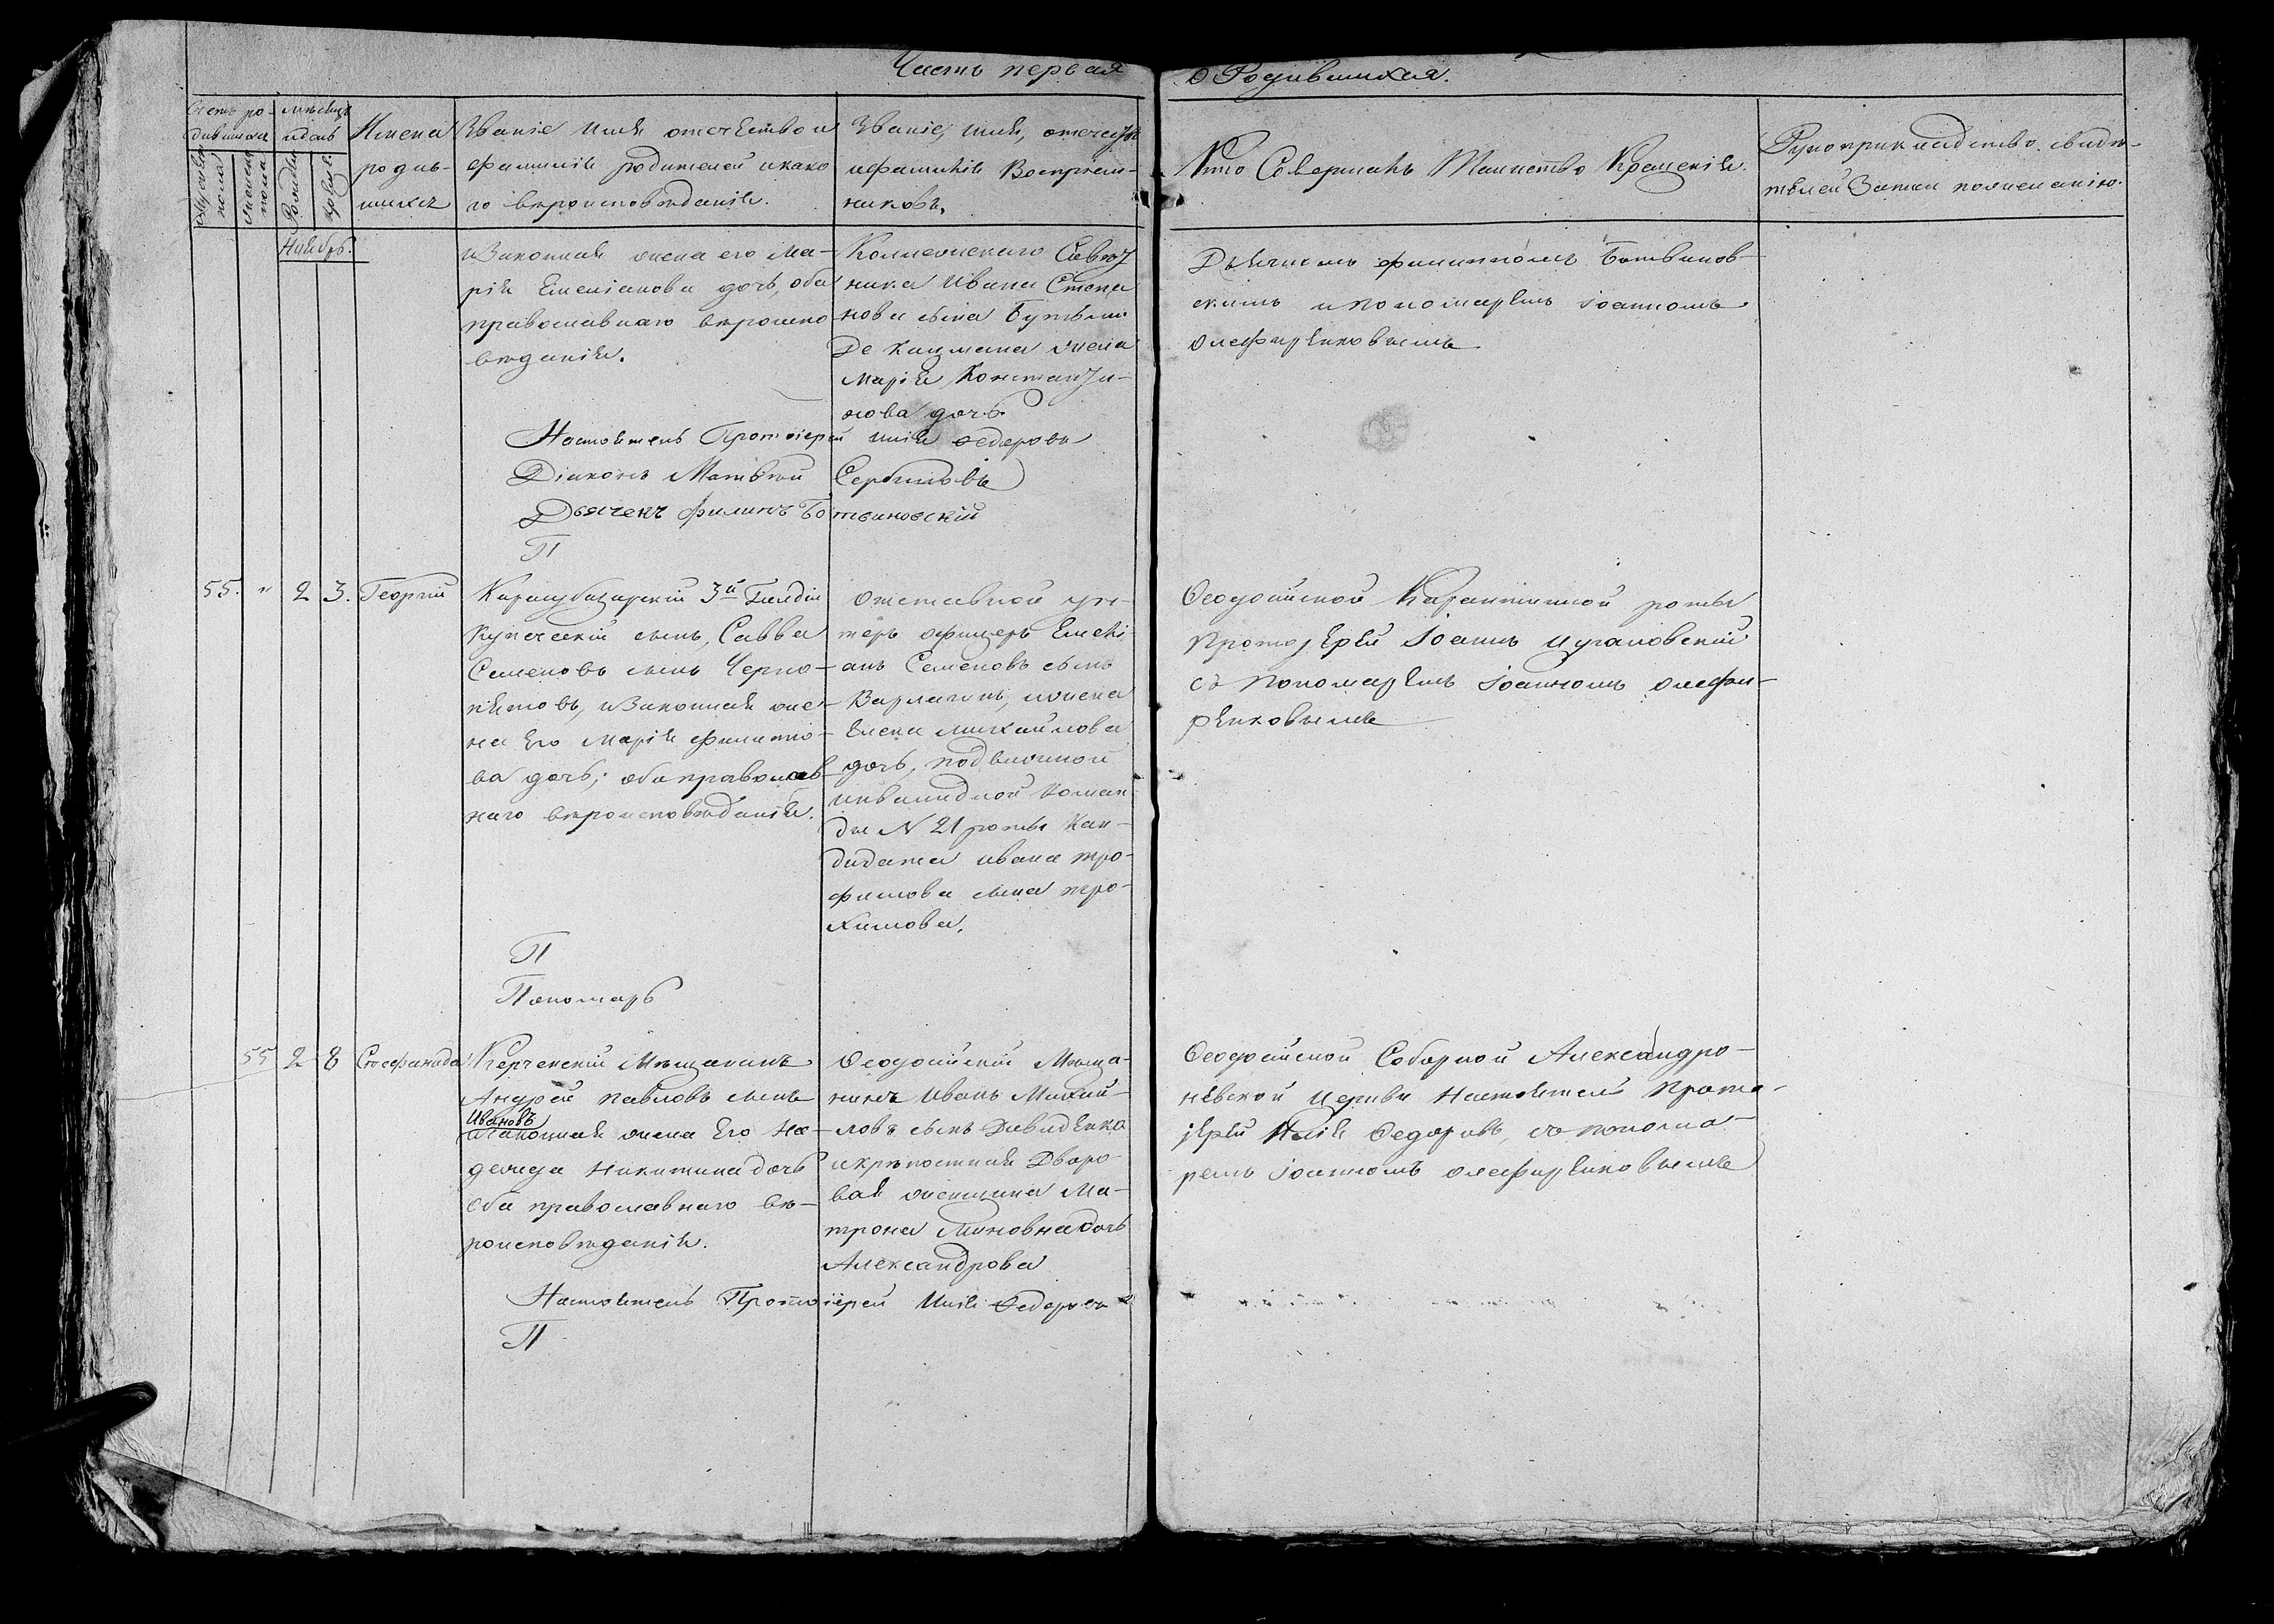 Часть первая
о Родившихся.
Счетъ ро-
дившихся
Мужеска
пола
Женска
пола
мѣсяцъ
и день
Рожденія
Крещ.
Имена
родив-
шихся
Званіе имя отечество и
фамилія родителей и како
го вѣроисповѣданія.
Званіе, имя, отечест.
и фамилія Воспріем-
никовъ.
Кто Совершалъ Таинство Крещенія.
Рукоприкладство свидѣ-
телей Записи по желанію.
Ноябрь.
и Законная жена его Ма-
рія Емеліанова дочь, оба
православнаго вѣроиспо
вѣданія.
Коллежскаго Совѣт
ника Ивана Степа
нова сына
Де Кацмана жена
Марія Константи-
нова дочь.
Настоятель Протоіерей Илія Федоровъ
Діаконъ Матвѣй Сербиновъ
Дьячекъ Филипъ Ботвиновскій
П
Дьячкомъ Филиппомъ Ботвинов-
скимъ и пономаремъ Іоанномъ
Олефиренковымъ
55. " 2 3. Георгій
Карасубазарскій 3й Гилдіи
купеческій сынъ, Савва
Семеновъ сынъ Черно-
пятовъ, и Законная же-
на его Марія Филипо-
ва дочь; оба православ-
наго вѣроисповѣданія.
Отставной ун-
теръ офицеръ Емелі-
анъ Семеновъ сынъ
Варлагинъ, и жена
Елена Михайлова
дочь, подвижной
инвалидной коман
ды N 21 роты Кан-
дидата Ивана Тро-
фимова сына Тро-
химова.
П
Пономарь
Феодосійской Карантинной роты
Протоіерей Іоаннъ Цугановскій
съ Пономаремъ Іоанномъ Олефи-
ренковымъ
55 2 8 Стефанида
Керченскій Мѣщанинъ
Андрей Павловъ сынъ
Ивановъ
и Законная жена Его На-
дежда Никитина дочь
оба православнаго вѣ-
роисповѣданія.
Феодосійскій Мѣща-
нинъ Иванъ Михай-
ловъ сынъ Давиденко
и крѣпостная Дворо-
вая женщина Ма-
трона Миновна дочь
Александрова
Настоятель Протоіерей Илія Федоровъ
П
Феодосійской Соборной Александро-
невской Церкви Настоятель Прото-
іерей Илія Федоровъ, со понома-
ремъ Іоанномъ Олефиренковымъ